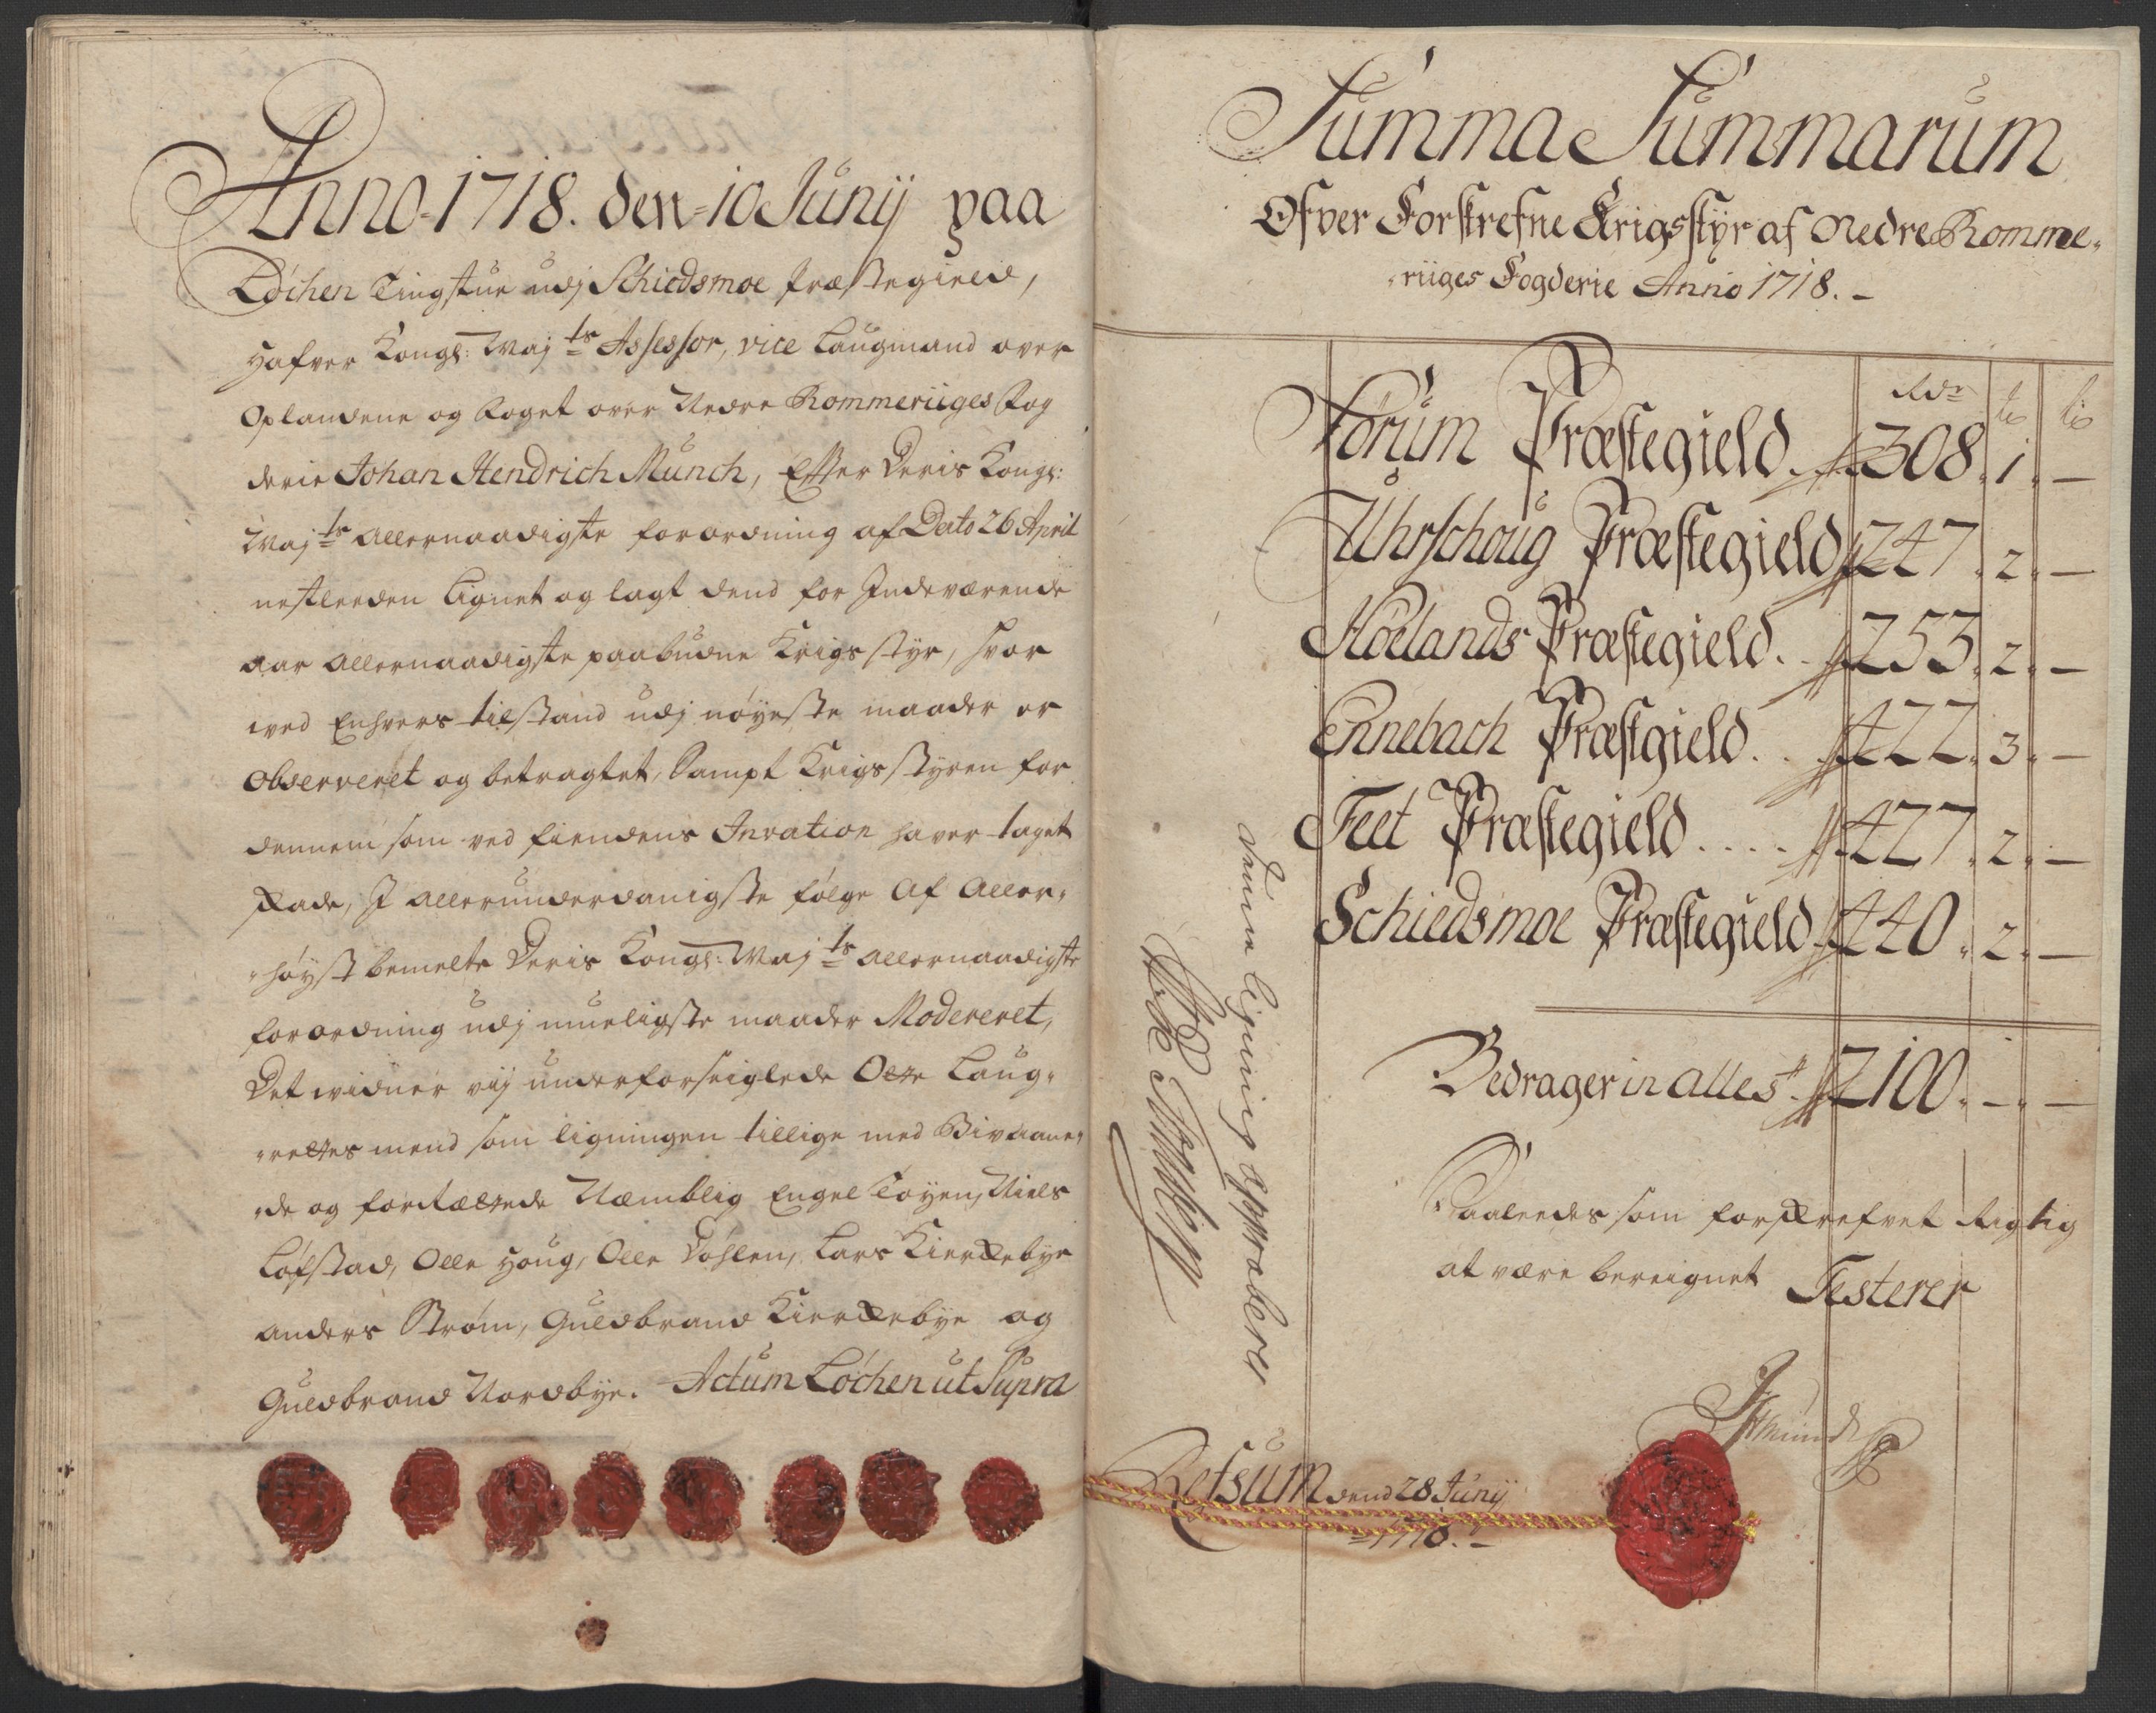 Anno 1718. den 10 Junij paa
Løchen Tingstue udj Schiedsmoe Præstegield,
Hafver Kongl: Maj:ts Assessor, vice Laugmand over
Oplandene og Foget over Nedre Rommeriiges Fog
derie Johan Hendrich Munch, Effter Deris Kongl:
Maj:ts allernaadigste forordning af Dato 26 April
nestleeden Lignet og lagt dend for Indeværende
aar allernaadigste paabudne Krigs styr, hvor
ved Enhvers tilstand udj nöyeste maader er
Observeret og betragtet, Sampt Krigsstyren for
dennem som ved fiendens Invation haver taget
skade, I allerunderdanigste følge Af Aller-
-høyst bemelte Deris Kongl: Maj:ts allernaadigste
forordning udj mueligste maader Modereret,
Det widner vij underforseiglede Otte Laug-
-rettes mend som ligningen tillige med Bivaane-
-de og forrættede Næmblig Engel Töyen, Niels
Löfstad, Olle Houg, Olle Döhlen, Lars Kierkebye
Anders Ström, Guldbrand Kierkebye og
Guldbrand Nordbye. Actum Løchen ut Supra
Summa Summarum
Ofver Forskrefne Krigsstyr af Nedre Romme-
-riiges Fogderie Anno 1718. -
Rdr
Sörum Præstegield. 308. 1. —
Uhrschoug Præstegield 247. 2. —
Höelands Præstegield. . 253. 2. —
Ennebach Præstgield. . 422. 3. —
Feet Præstegield . . . . 427. 2. —
Schiedsmoe Præstegield 440. 2. —
Bedrager in alles 2100. —. —
Saaledes som forskrefvet Rigtig
at være bereignet Testerer
JHMunch
Denne ligning approberer
Retsum dend 28 Junij
1718. -